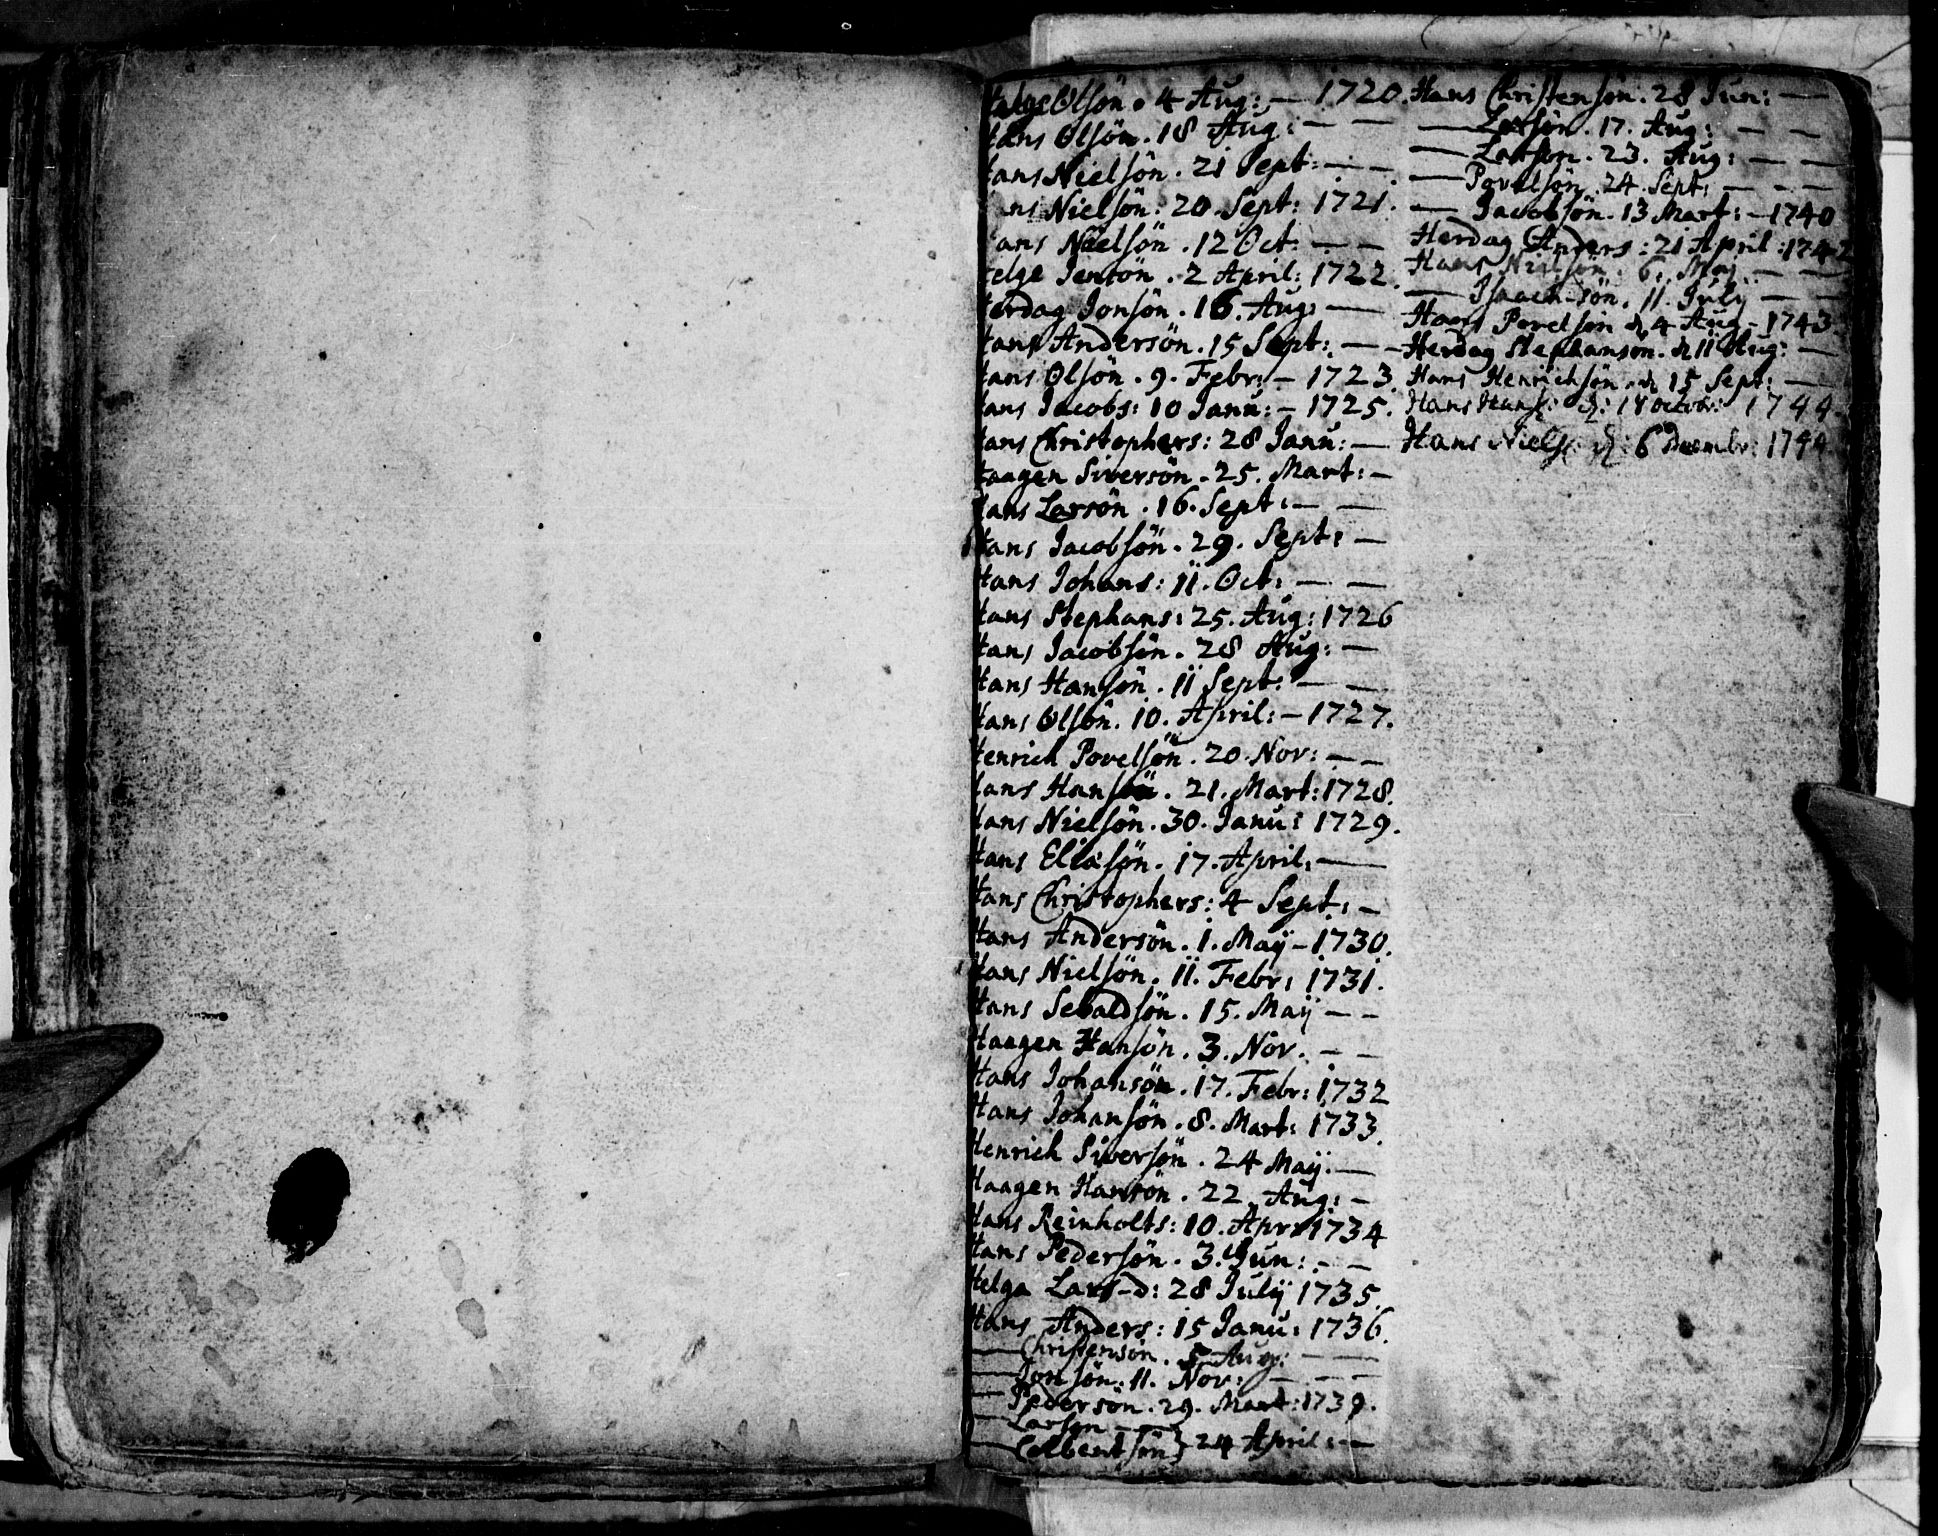 Helge Olsön. 4 Aug: — 1720.
Hans Olsön. 18 Aug: — —
Hans Nielsön. 21 Sept: — —
Hans Nielsön. 20. Sept: 1721.
Hans Nielsön. 12 Oct: — —
Helge Jensön. 2 April: 1722.
Herdag Jonsön. 16. Aug: —
Hans Andersön. 15 Sept: — —
Hans Olsön. 9. Febr: — 1723.
Hans Jacobs: 10 Janu: — 1725.
Hans Christophers: 28 Janu: —
Haagen Siversön. 25. Mart: —
Hans Larsön. 16. Sept: — —
Hans Jacobsön. 29. Sept: —
Hans Johans: 11. Oct: — —
Hans Stephans: 25. Aug: 1726
Hans Jacobsön. 28 Aug: —
Hans Hansön. 11 Sept: — —
Hans Olsön. 10. April: — 1727.
Henrich Povelsön. 20. Nov: — —
Hans Hansön. 21. Mart: 1728.
Hans Nielsön. 30. Janu: 1729.
Hans Eliasön. 17. April: —
Hans Christophers: 4 Sept: —
Hans Andersön. 1. Maÿ — 1730.
Hans Nielsön. 11. Febr: 1731.
Hans Sebaldsön. 15. Maÿ — —
Haagen Hansön. 3. Nov. — —
Hans Johansön. 17. Febr: 1732
Hans Johansön. 8. Mart: 1733.
Henrich Siversön. 24 Maÿ. —
Haagen Hansön. 22. Aug: —
Hans Reinholts: 10. Apr: 1734
Hans Pedersön. 3. Jun: — —
Helga Lars-d: 28 Julÿ 1735.
Hans Anders: 15 Janu: 1736.
— Christensön. 5 Aug: — —
— Jonsön. 11. Nov: — — —
— Pedersön. 29. Mart: 1739.
— Larsøn — —
— } 24 April: —
Hans Christensön. 28 Jun: —
— Larsön. 17. Aug: — —
— Larsøn. 23. Aug: — —
— Povelsön. 24. Sept: — — —
— Jacobsön. 13 Mart: — 1740
Herdag Anders: 21 April: 1742
Hans Nielsön. 6. Maÿ — —
— Isaach-sön. 11. Julÿ — —
Hans Povelsön d. 4 Aug — 1743.
Herdag Stephansön. d. 11 Aug: —
Hans Henrichsön. d. 15 Sept: —
Hans Hans: d: 18 octobr: 1744.
Hans Niels: d: 6 Decembr: 1744